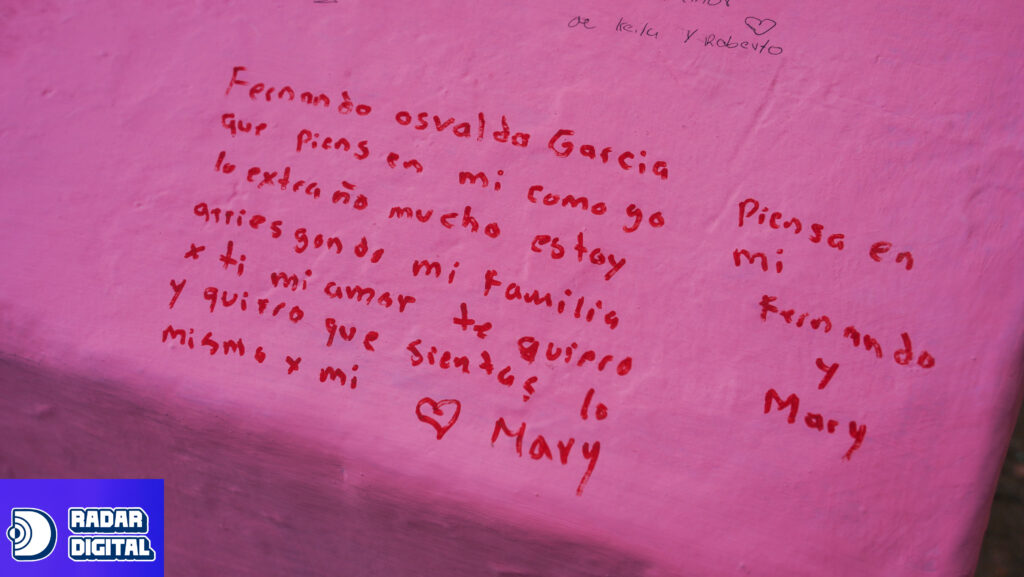 de Keila y Roberto
Fernando osvaldo Garcia
que piens en mi como yo
lo extraño mucho estoy
arriesgando mi familia
x ti mi amor te quiero
y quirro que sientas lo
mismo x mi
Mary
Piensa en
mi
Fernando
y
Mary
RADAR
DIGITAL